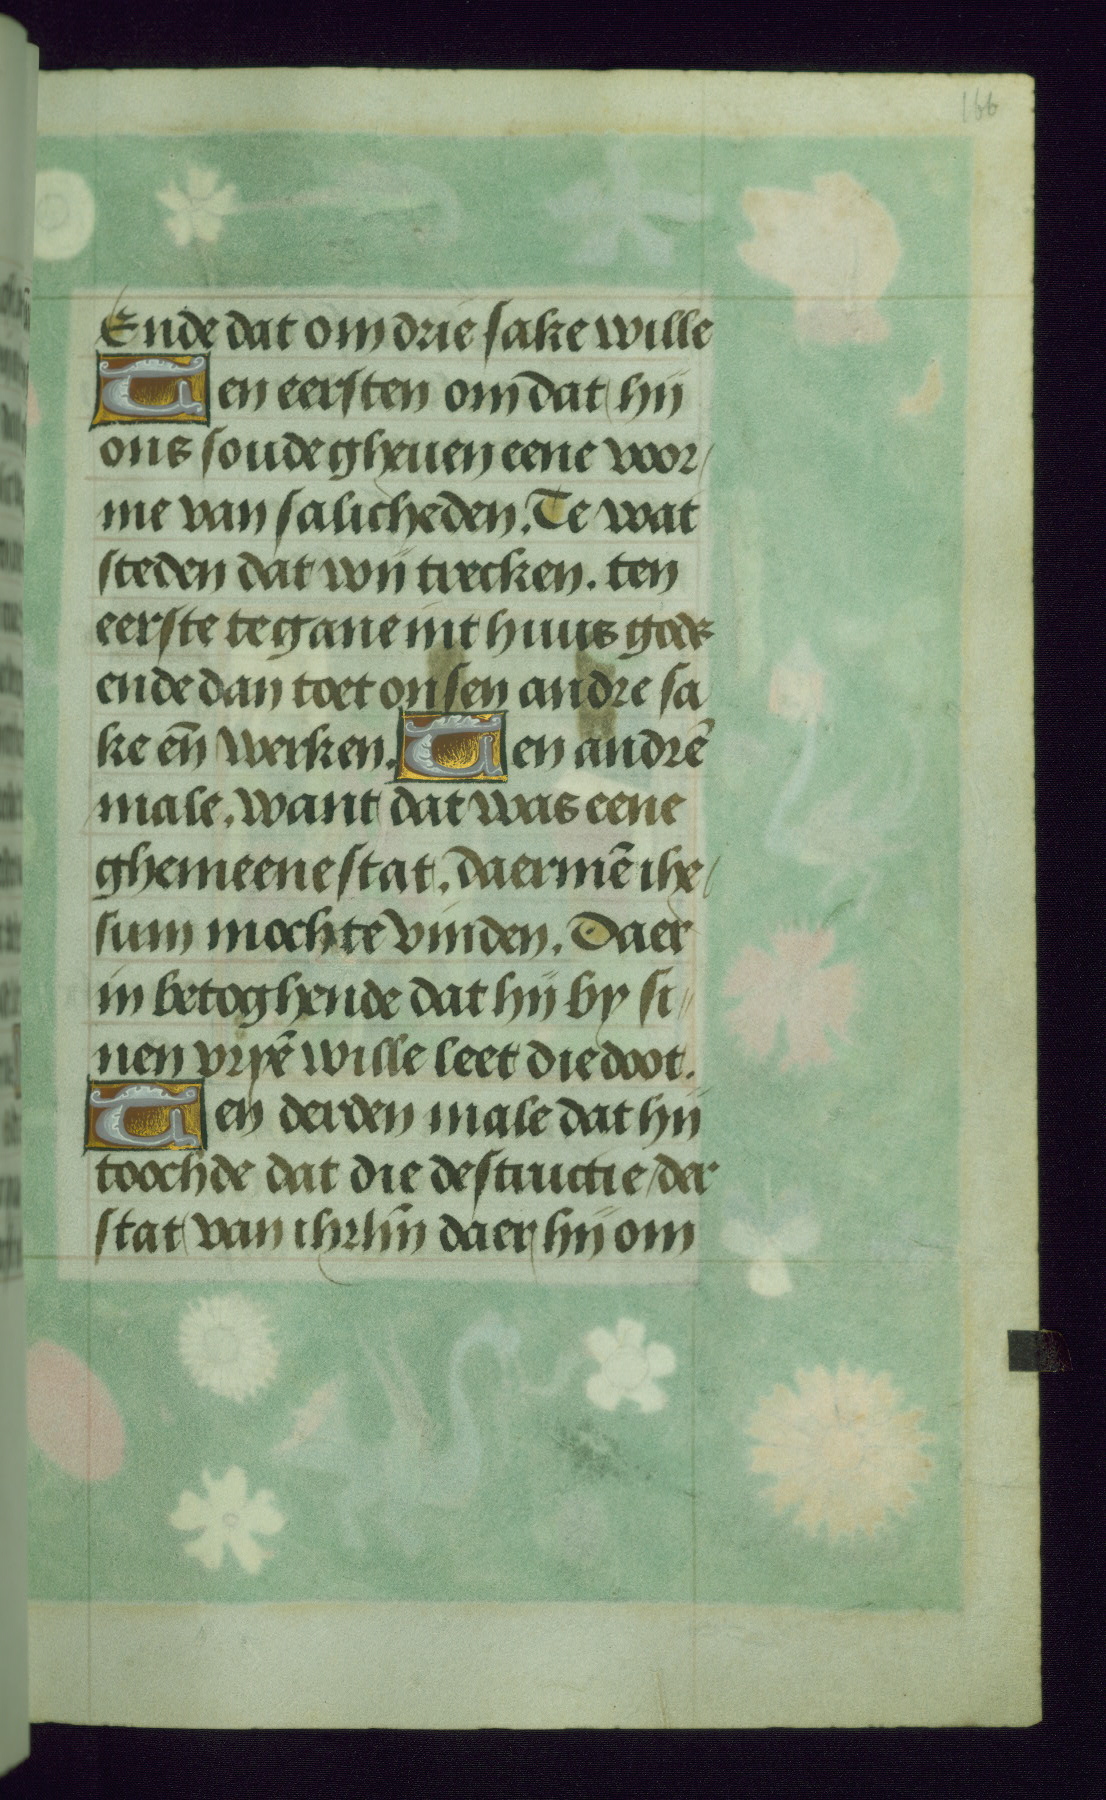 166
Ende dat om drie sake wille
Ten eersten om dat hij
ons soude gheuen eene voor/
me van salicheden. Te wat
steden dat wij trecken. ten
eerste te gane int huus gods
ende dan toet onsen andre sa
ke en̄ werken. Ten andrē
male. want dat was eene
ghemeene stat. daermē ihe/
sum mochte vinden. Daer
in betoghende dat hij by si//
nen vryē wille leet die doot.
Ten derden male dat hij
toochde dat die destructie der
stat van ihrlm̄ daer hij om